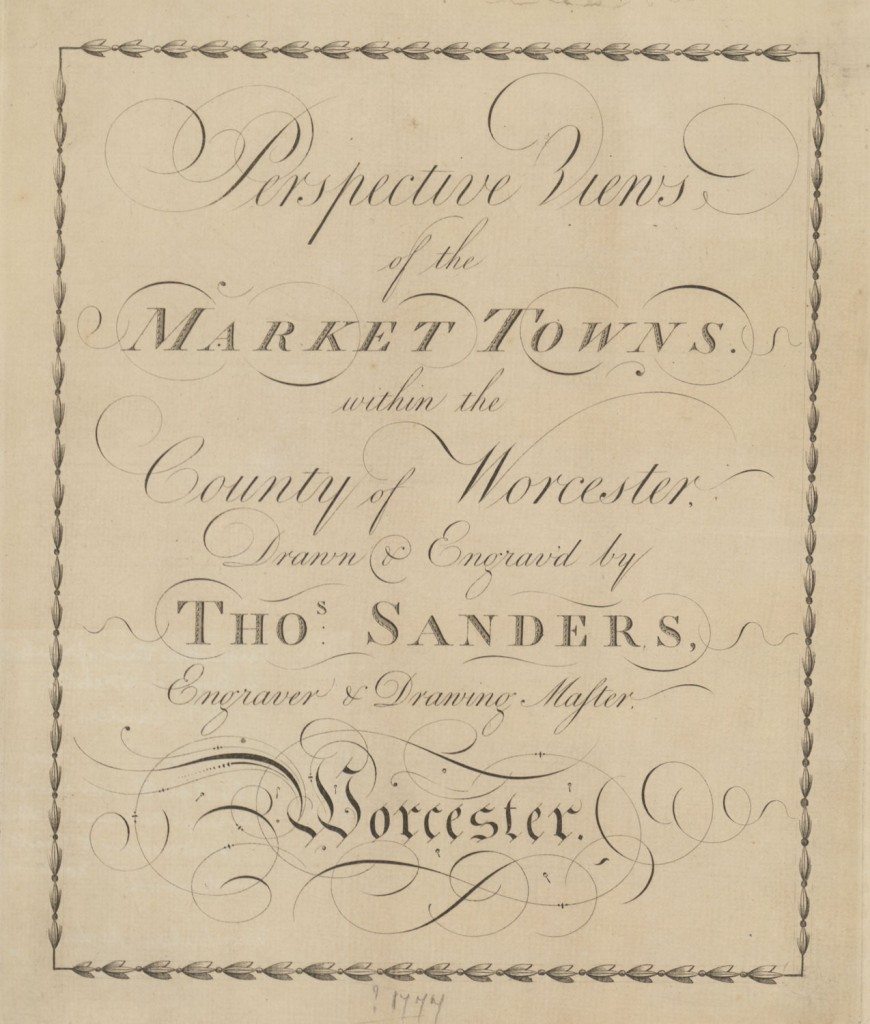 Perspective Views
of the
MARKET TOWNS.
within the
County of Worcester,
Drawn & Engrav'd by
THOˢ. SANDERS,
Engraver & Drawing Maſter.
Worcester.
? 1777